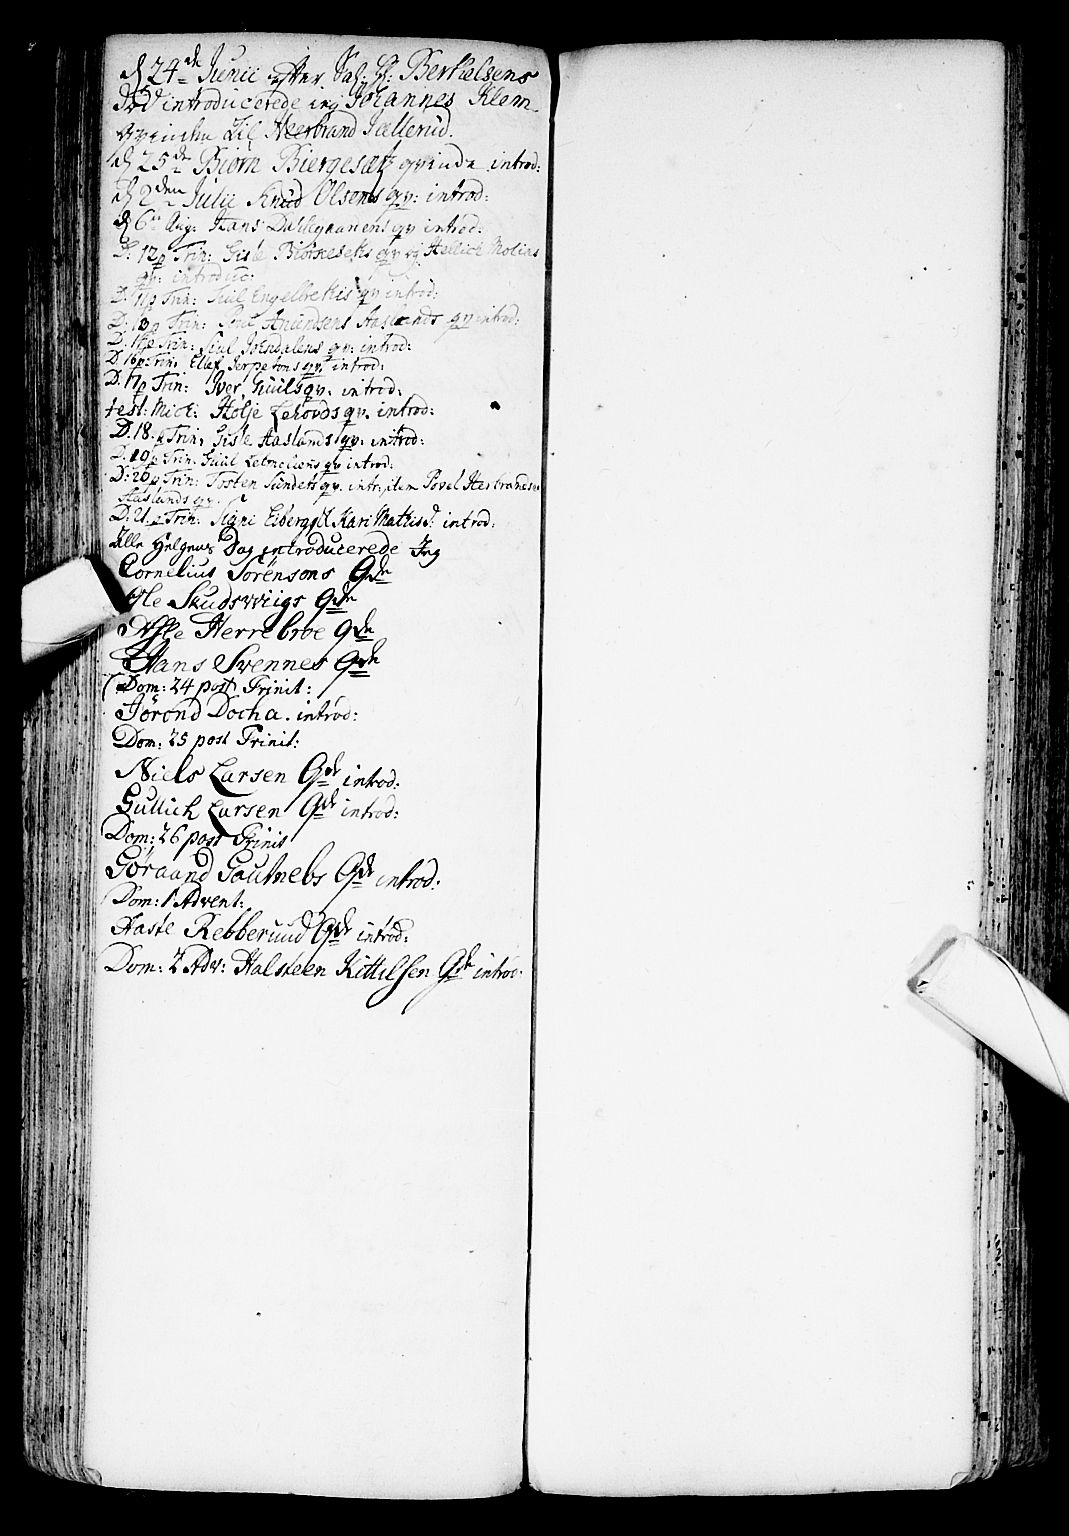 d 24de Junii efter Sal: Hr: Berthelsens
Död introducerede jeg Johannes Klem-
qvinde til Heerbrand Jællerud.
d 25de Biørn Biergesæt qvinde introd:
d 2den Julii Knud Olsens qv: introd:
d 6te Aug: Hans qv introd:
D: 12 p Trin: Gisle qv og Hellich Molins
qv: introduc:
D. 11 p Trin: Engelbrekts qv introd:
D. 13 p Trin: Poul Amundsens Aaslands qv introd:
D. p Trin: qv: introd:
D. 16 p Trin: Ellef qv: introd:
D. 17 p Trin: Iver Guuls qv: introd:
Fest: Mich: Holje Lehovds qv. introd:
D. 18. p Trin: Gisle Aaslands qv: introd:
D. 19 p Trin: Guul qv introd:
D: 20 p Trin: Tosten Sunders qv. intr: item Povel Herbrands
Aaslands qv.
D. 21. p Trin: Signi Eberg Kari Mathisd: introd:
Alle Helgens Dag introducerede Jeg
Cornelius Sørensons Qde
Ole Skudsvviigs Qde
Aske Herrebroe Qde
Hans Svennes Qde
Dom: 24 post Trinit:
Jørond Docha. introd:
Dom: 25 post Trinit:
Niels Larsen Qde introd:
Gullich Larsen Qde introd:
Dom: 26 post Trinit
Gøraand Gautnebs Qde introd:
Dom: 1 Advent:
Haste Rebberuud Qde introd:
Dom: 2 Adv: Halsteen Kittilsen Qde introd: